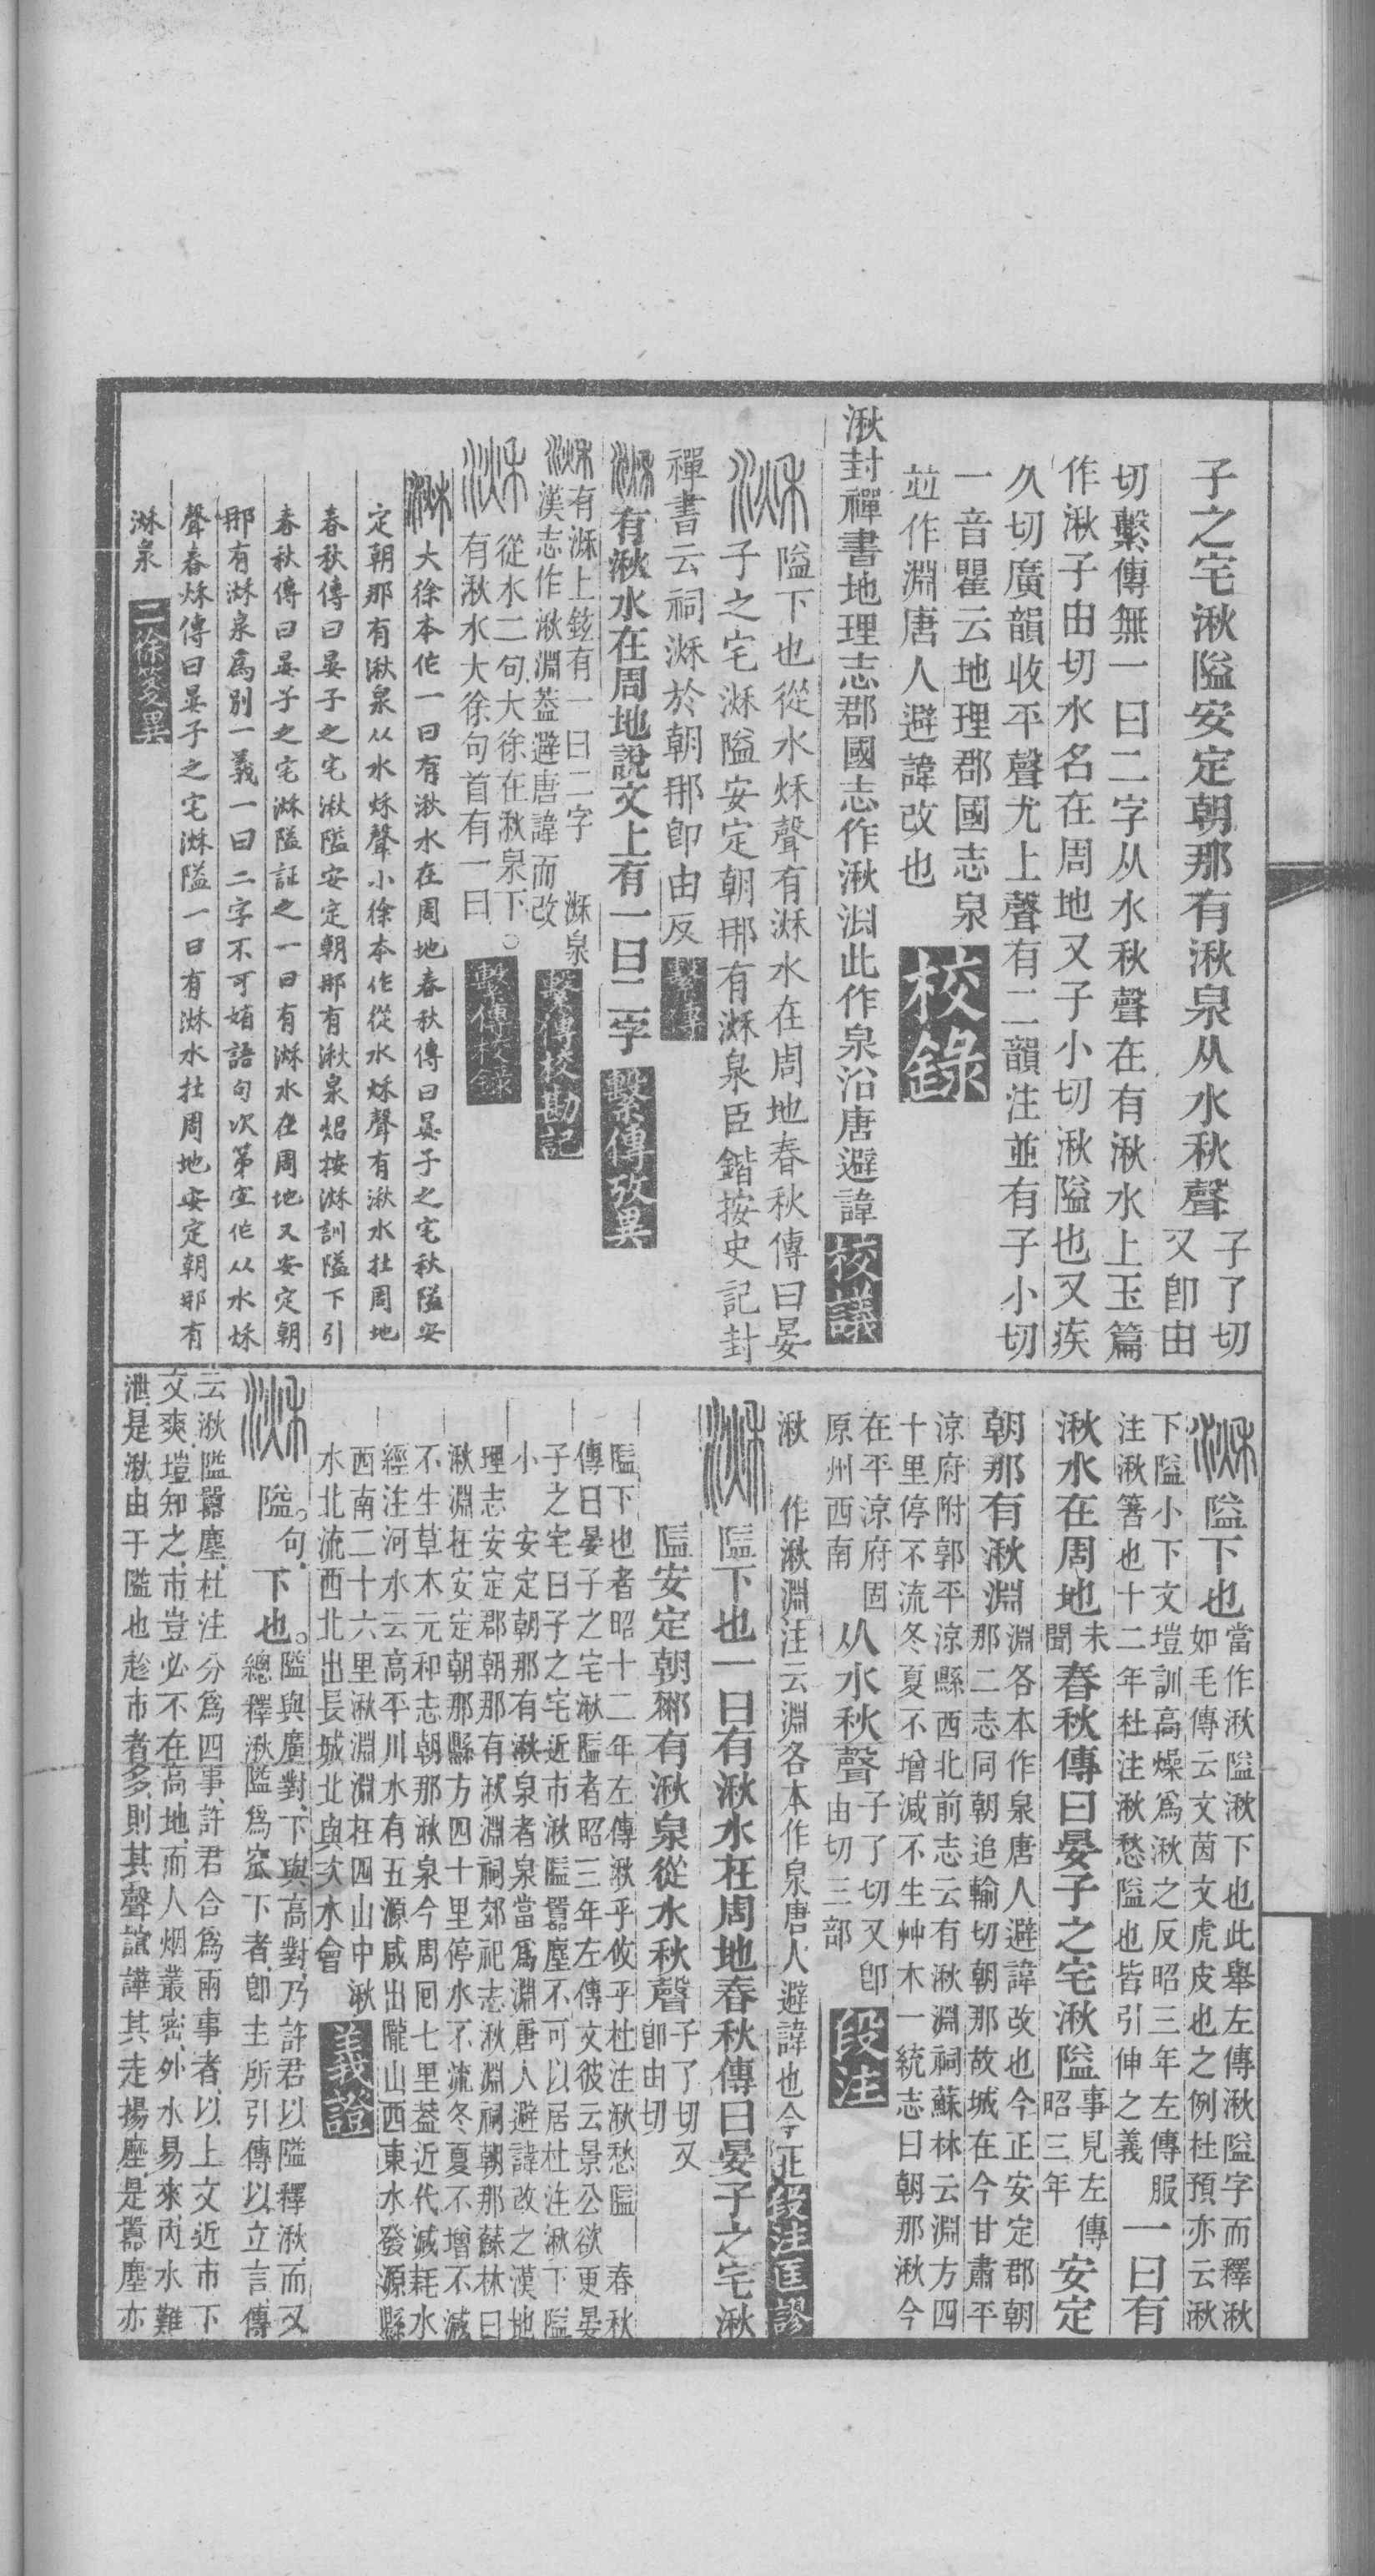 子之宅湫隘安定朝那有湫泉从水秋聲子了切
又卽由
切繫傳無一曰二字从水秋聲在有湫水上玉篇
作湫子由切水名在周地又子小切湫隘也又疾
久切廣韻收平聲尤上聲有二韻注並有子小切
一音瞿云地理郡國志泉
竝作淵唐人避諱改也
校錄
湫封禪書地理志郡國志作湫淵此作泉沿唐避諱
校議
隘下也從水秌聲有湫水在周地春秋傳曰晏
子之宅湫隘安定朝那有湫泉臣鍇按史記封
禪書云祠湫於朝那卽由反
繫傳
有湫水在周地說文上有一曰二字
繫傳攷異
有湫上鉉有一曰二字 湫泉
漢志作湫淵蓋避唐諱而改
繫傳校勘記
從水二句大徐在湫泉下。
有湫水大徐句首有一曰
繫傳校錄
大徐本作一曰有湫水在周地春秋傳曰晏子之宅秋隘安
定朝那有湫泉从水秌聲小徐本作從水秌聲有湫水在周地
春秋傳曰晏子之宅湫隘安定朝那有湫泉炤按湫訓隘下引
春秋傳曰晏子之宅湫隘証之一曰有湫水在周地又安定朝
那有湫泉爲別一義一曰二字不可媘語句次第宜作从水秌
聲春秌傳曰晏子之宅湫隘一曰有湫水在周地安定朝那有
湫泉
二徐箋異
隘下也當作湫隘湫下也此舉左傳湫隘字而釋湫
如毛傳云文茵文虎皮也之例杜預亦云湫
下隘小下文塏訓高燥爲湫之反昭三年左傳服
注湫箸也十二年杜注湫愁隘也皆引伸之義
一曰有
湫水在周地未
聞春秋傳曰晏子之宅湫隘事見左傳
昭三年安定
朝那有湫淵淵各本作泉唐人避諱改也今正安定郡朝
那二志同朝追輸切朝那故城在今甘肅平
涼府附郭平涼縣西北前志云有湫淵祠蘇林云淵方四
十里停不流冬夏不增減不生艸木一統志曰朝那湫今
在平涼府固
原州西南从水秋聲子了切又卽
由切三部
段注
湫 作湫淵注云淵各本作泉唐人避諱也今正
段注匡謬
隘下也一曰有湫水在周地春秋傳曰晏子之宅湫
隘安定朝䣝有湫泉從水秋聲子了切又
卽由切
隘下也者昭十二年左傳湫乎攸乎杜注湫愁隘 春秋
傳曰晏子之宅湫隘者昭三年左傳文彼云景公欲更晏
子之宅曰子之宅近市湫隘囂塵不可以居杜注湫下隘
小 安定朝那有湫泉者泉當爲淵唐人避諱改之漢地
理志安定郡朝那有湫淵祠郊祀志湫淵祠朝那蘇林曰
湫淵在安定朝那縣方四十里停水不流冬夏不增不減
不生草木元和志朝那湫泉今周回七里葢近代減耗水
經注河水云高平川水有五源咸出隴山西東水發源縣
西南二十六里湫淵淵在四山中湫
水北流西北出長城北與次水會
義證
隘。句。下也。隘與廣對、下與高對、乃許君以隘釋湫、而又
總釋湫隘爲窊下者、卽主所引傳以立言、傳
云湫隘囂塵、杜注分爲四事、許君合爲兩事者、以上文近市下
文爽塏知之、市豈必不在高地、而人烟叢密、外水易來、內水難
泄、是湫由于隘也、趁市者多、則其聲諠譁、其走揚塵、是囂塵亦